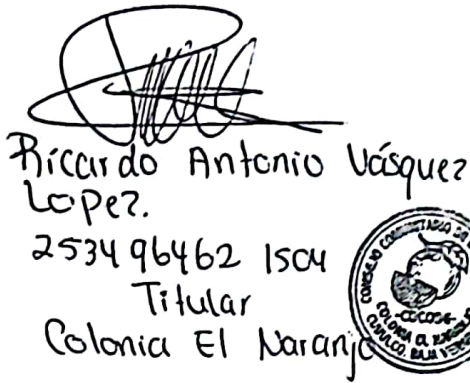 Riccardo Antonio Vásquez
Lopez.
2534 96462 1504
Titular
Colonia El Naranjo
CONSEJO COMUNITARIO DE
-COCOSE-
COLONIA EL NARANJO
CUBULCO, BAJA VER